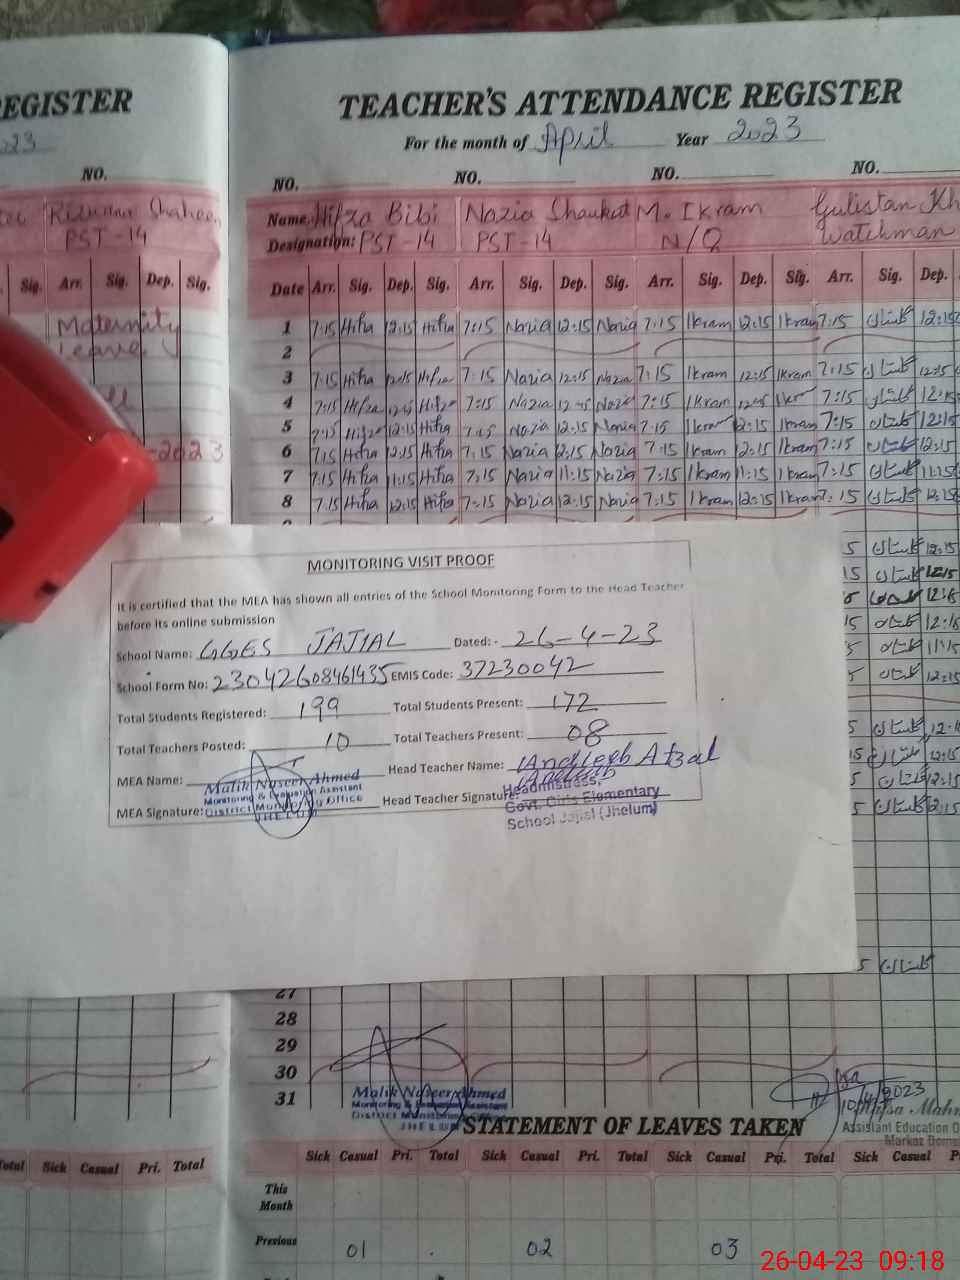 REGISTER
23
NO.
Shaheen
PST-14
Sig. Arr. Sig. Dep. Sig.
Maternity
Leave
2023
TEACHER'S ATTENDANCE REGISTER
For the month of April Year 2023
NO. NO. NO. NO.
Name. Hifza Bibi Nazia Shaukat M. Ikram Gulistan Kh
Designation: PST-14 PST-14 N/Q Watchman
Date Arr. Sig. Dep. Sig. Arr. Sig. Dep. Sig. Arr. Sig. Dep. Sig. Arr. Sig. Dep.
1 7:15 Hifza 12:15 Hifza 7:15 Nazia 12:15 Nazia 7:15 Ikram 12:15 Ikram 7:15 گلستان 12:15
2
3 7:15 Hifza 12:15 Hifza 7:15 Nazia 12:15 Nazia 7:15 Ikram 12:15 Ikram 7:15 گلستان 12:15
4 7:15 Hifza Hifza 7:15 Nazia Nazia 7:15 Ikram 7:15 گلستان 12:15
5 7:15 Hifza 12:15 Hifza 7:15 Nazia 12:15 Nazia 7:15 Ikram 12:15 Ikram 7:15 گلستان 12:15
6 7:15 Hifza 12:15 Hifza 7:15 Nazia 12:15 Nazia 7:15 Ikram 12:15 Ikram 7:15 گلستان 12:15
7 7:15 Hifza 11:15 Hifza 7:15 Nazia 11:15 Nazia 7:15 Ikram 11:15 Ikram 7:15 گلستان 11:15
8 7:15 Hifza 12:15 Hifza 7:15 Nazia 12:15 Nazia 7:15 Ikram 12:15 Ikram 7:15 گلستان 12:15
MONITORING VISIT PROOF
It is certified that the MEA has shown all entries of the School Monitoring Form to the Head Teacher
before its online submission
School Name: GGES JAJIAL Dated:- 26-4-23
School Form No: 23042608461435 EMIS Code: 37230042
Total Students Registered: 199 Total Students Present: 172
Total Teachers Posted: 10 Total Teachers Present: 08
MEA Name: Head Teacher Name: Andleeb Afzal
Malik Naseer Ahmed
Monitoring & Evaluation Assistant
District Monitoring Office
JHELUM
MEA Signature: Head Teacher Signature:
Headmistress,
Govt. Girls Elementary
School Jajial (Jhelum)
5 گلستان 12:15
15 گلستان 12:15
5 گلستان 12:15
15 گلستان 12:15
5 گلستان 11:15
5 گلستان 12:15
5 گلستان
15 گلستان 12:15
5 گلستان 12:15
5 گلستان 12:15
5 گلستان
27
28
29
30
31
Malik Naseer Ahmed
Monitoring & Evaluation Assistant
District Monitoring Office
JHELUM
10/4/2023
Assistant Education O
Markaz
STATEMENT OF LEAVES TAKEN
Total Sick Casual Pri. Total
Sick Casual Pri. Total Sick Casual Pri. Total Sick Casual Pri. Total Sick Casual P
This
Month
Previous 01 02 03
26-04-23 09:18